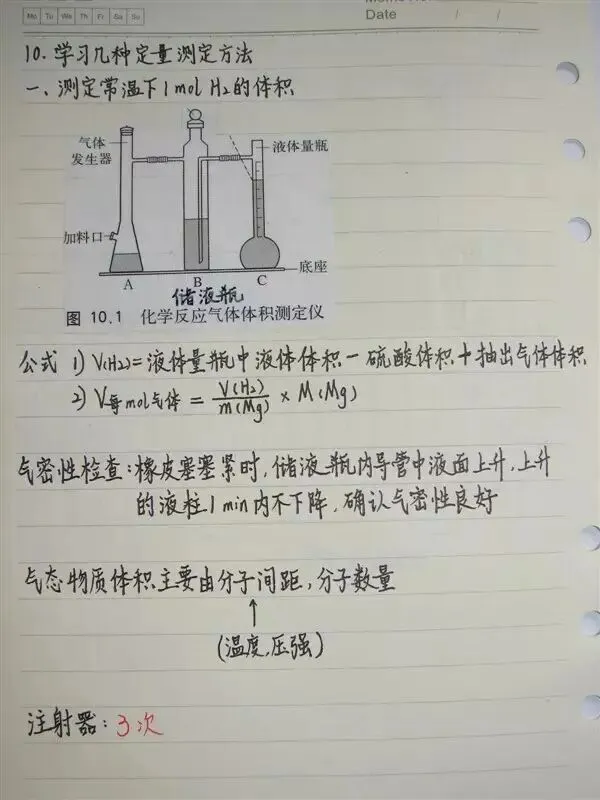 Mo Tu We Th Fr Sa Su
Date / /
10. 学习几种定量测定方法
一、测定常温下1mol H₂的体积
气体
发生器
液体量瓶
加料口
底座
A B C
储液瓶
图 10.1 化学反应气体体积测定仪
公式 1) V(H₂)=液体量瓶中液体体积-硫酸体积+抽出气体体积
2) V每mol气体 = V(H₂)/m(Mg) × M(Mg)
气密性检查:橡皮塞塞紧时,储液瓶内导管中液面上升,上升
的液柱1min内不下降,确认气密性良好
气态物质体积主要由分子间距,分子数量
↑
(温度,压强)
注射器:3次